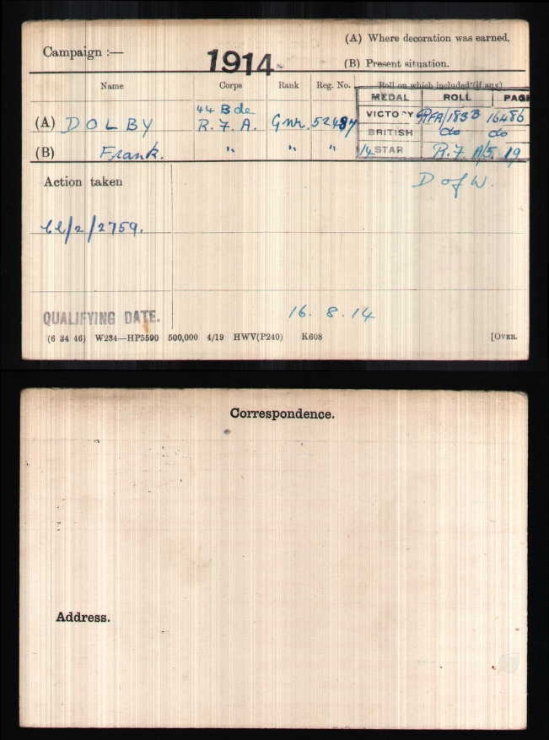 (A) Where decoration was earned.
Campaign :— 1914
(B) Present situation.
Name Corps Rank Reg. No. Roll on which included (if any)
MEDAL ROLL PAGE
44 Bde
VICTORY RFA/183B 16486
(A) DOLBY R.F.A. Gnr. 52487
BRITISH do do
(B) Frank. " " " 14 STAR R.F.A/5 19
Action taken D of W.
/2/2759.
QUALIFYING DATE. 16. 8. 14
(6 34 46) W234—HP5590 500,000 4/19 HWV(P240) K608 [OVER.
Correspondence.
Address.